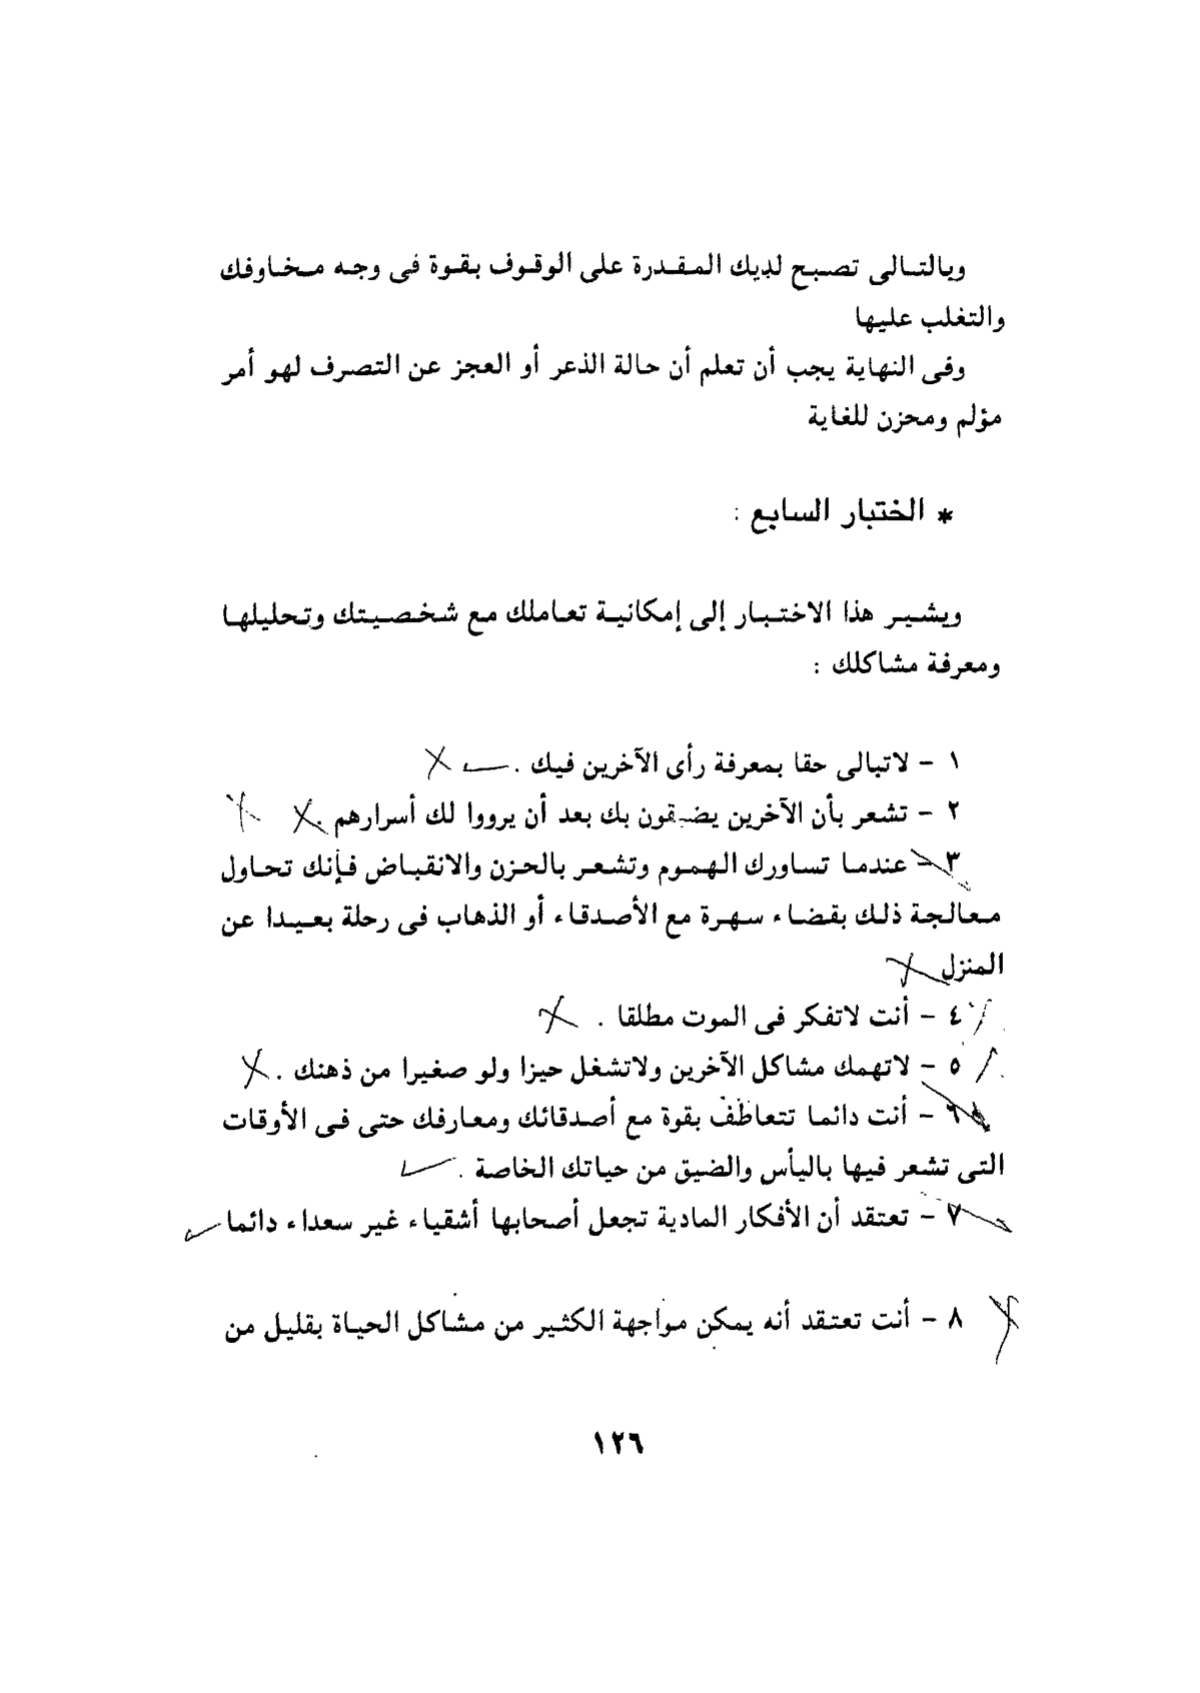 وبالتالى تصبح لديك المقدرة على الوقوف بقوة فى وجه مخاوفك
والتغلب عليها
وفى النهاية يجب أن تعلم أن حالة الذعر أو العجز عن التصرف لهو أمر
مؤلم ومحزن للغاية
* الختبار السابع :
ويشير هذا الاختبار إلى إمكانية تعاملك مع شخصيتك وتحليلها
ومعرفة مشاكلك :
١ - لاتبالى حقا بمعرفة رأى الآخرين فيك .
٢ - تشعر بأن الآخرين يضيقون بك بعد أن يرووا لك أسرارهم .
٣ - عندما تساورك الهموم وتشعر بالحزن والانقباض فإنك تحاول
معالجة ذلك بقضاء سهرة مع الأصدقاء أو الذهاب فى رحلة بعيدا عن
المنزل
٤ - أنت لاتفكر فى الموت مطلقا .
٥ - لاتهمك مشاكل الآخرين ولاتشغل حيزا ولو صغيرا من ذهنك .
٦ - أنت دائما تتعاطف بقوة مع أصدقائك ومعارفك حتى فى الأوقات
التى تشعر فيها باليأس والضيق من حياتك الخاصة .
٧ - تعتقد أن الأفكار المادية تجعل أصحابها أشقياء غير سعداء دائما
٨ - أنت تعتقد أنه يمكن مواجهة الكثير من مشاكل الحياة بقليل من
١٢٦